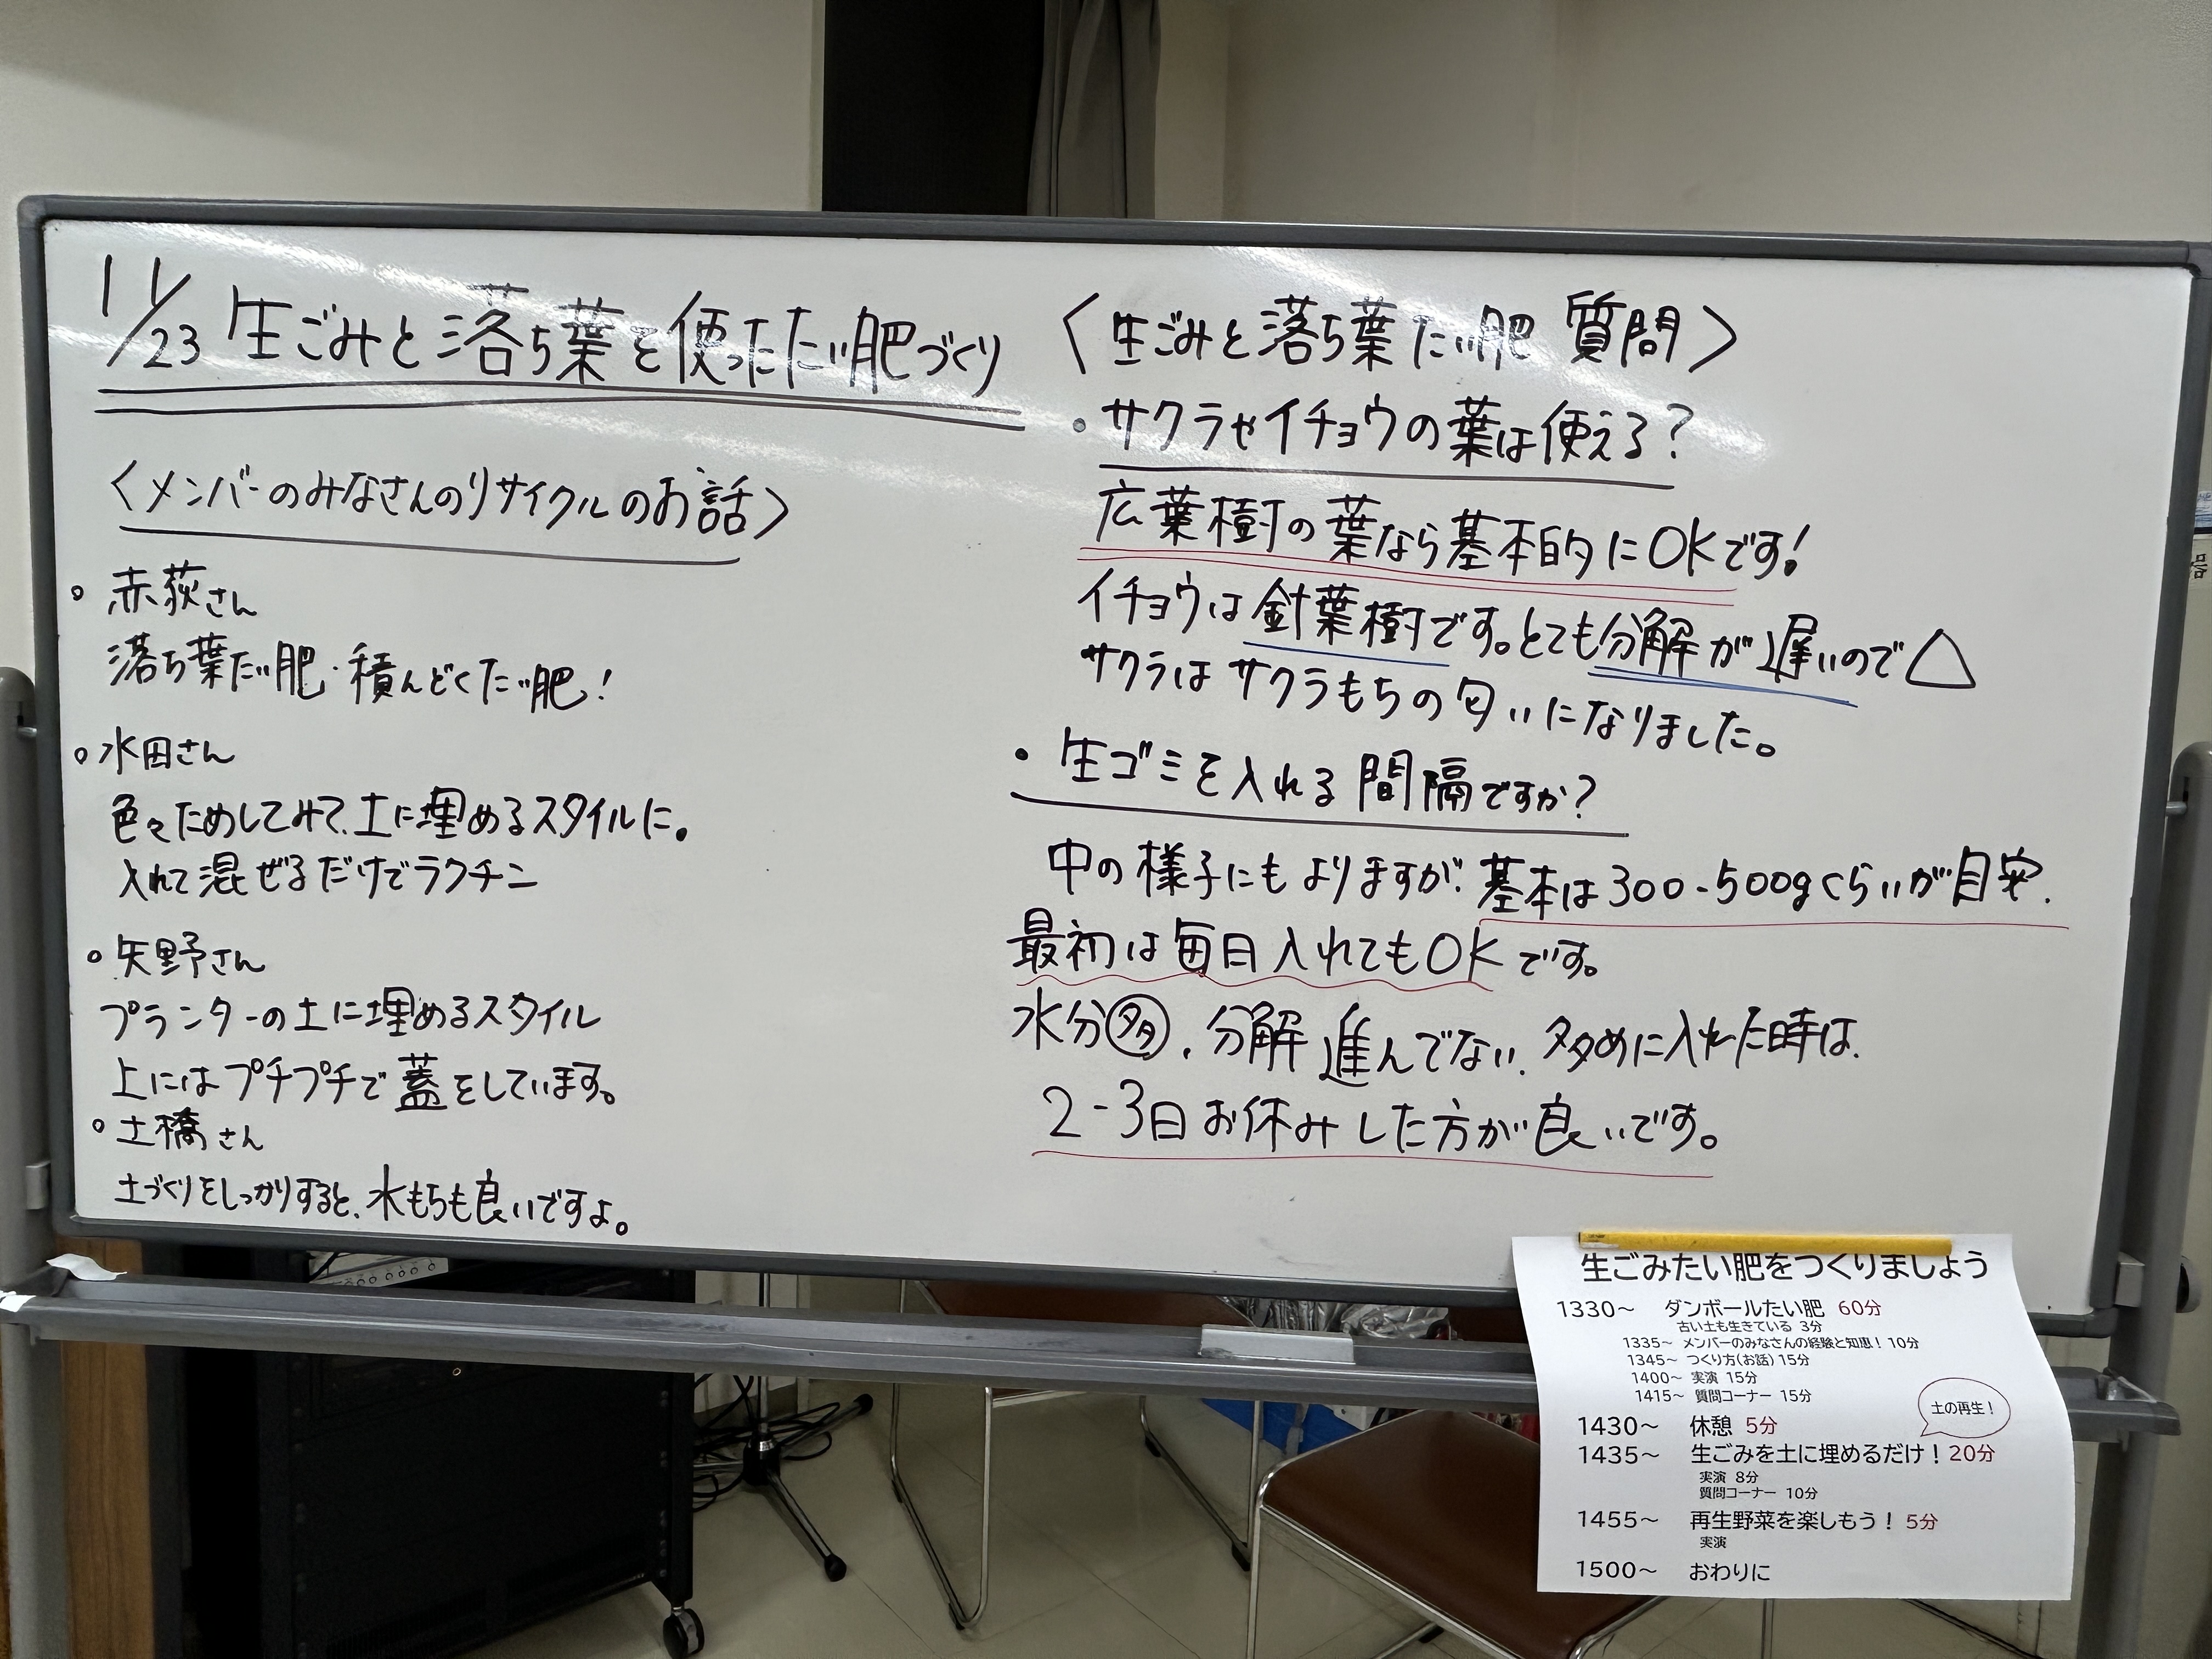 11/23 生ごみと落ち葉を使ったたい肥づくり
〈メンバーのみなさんのリサイクルのお話〉
。赤荻さん
落ち葉たい肥・積んどくたい肥！
。水田さん
色々ためしてみて、土に埋めるスタイルに。
入れて混ぜるだけでラクチン
。矢野さん
プランターの土に埋めるスタイル
上にはプチプチで蓋をしています。
。土橋さん
土づくりをしっかりすると、水もちも良いですよ。
〈生ごみと落ち葉たい肥 質問〉
・サクラやイチョウの葉は使える？
広葉樹の葉なら基本的にOKです！
イチョウは針葉樹です。とても分解が遅いので△
サクラはサクラもちの匂いになりました。
・生ゴミを入れる間隔ですか？
中の様子にもよりますが、基本は300-500gくらいが目安.
最初は毎日入れてもOKです。
水分多、分解進んでない、多めに入れた時は、
2-3日お休みした方が良いです。
生ごみたい肥をつくりましょう
1330～ ダンボールたい肥 60分
古い土も生きている 3分
1335～ メンバーのみなさんの経験と知恵！ 10分
1345～ つくり方(お話) 15分
1400～ 実演 15分
1415～ 質問コーナー 15分
土の再生！
1430～ 休憩 5分
1435～ 生ごみを土に埋めるだけ！ 20分
実演 8分
質問コーナー 10分
1455～ 再生野菜を楽しもう！ 5分
実演
1500～ おわりに